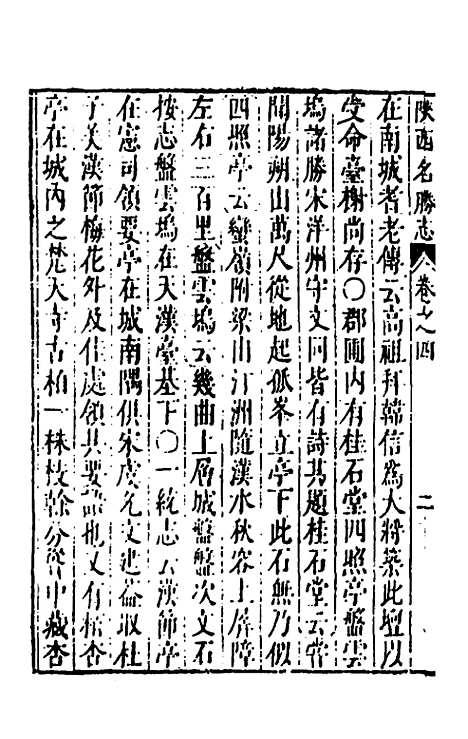 陝西名勝志 卷之四 二
在南城耆老傳云高祖拜韓信爲大將築此壇以
受命臺榭尚存〇郡圃內有桂石堂四照亭盤雲
塢諸勝宋洋州守文同皆有詩其題桂石堂云嘗
聞陽朔山萬尺從地起孤峯立亭下此石無乃似
四照亭云蠻嶺附梁山汀洲隨漢水秋容上屏障
左右三百里盤雲塢云幾曲上層城盤盤次文石
按志盤雲塢在天漢臺基下〇一統志云漢節亭
在憲司領要亭在城南隅俱宋虞允文建蓋取杜
子美漢節梅花外及佳處領其要語也又有栢杏
亭在城內之梵天寺古柏一株枝幹分聳中藏杏